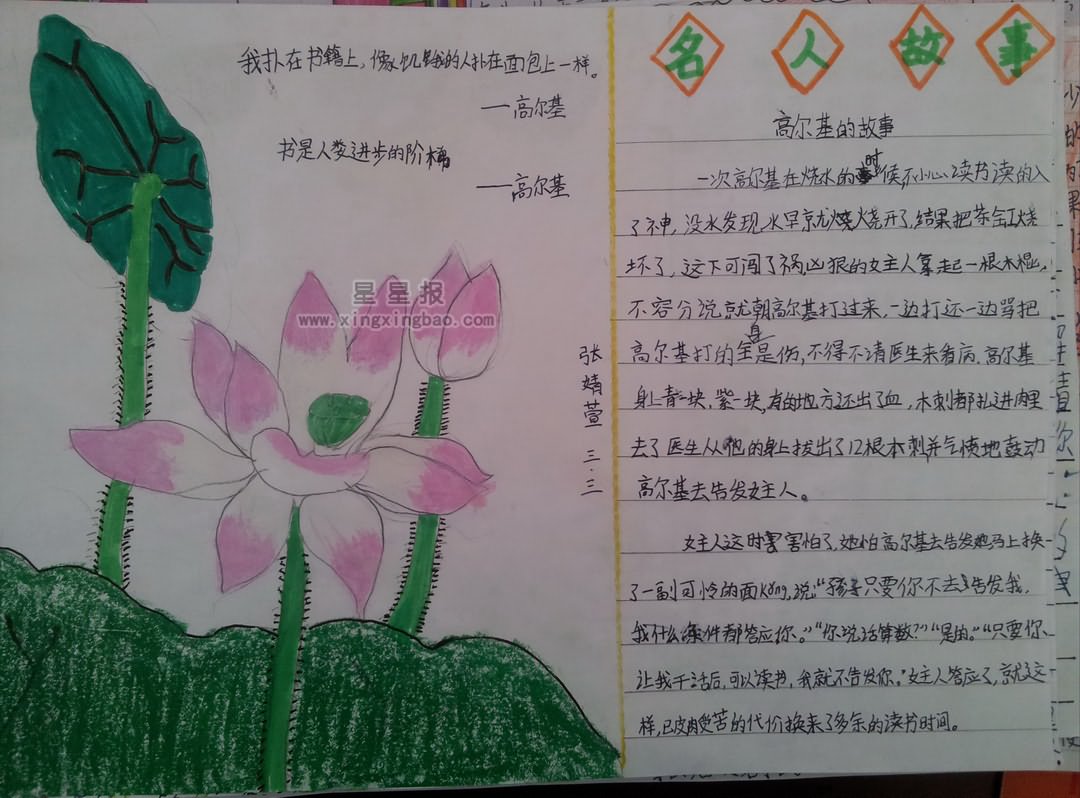 我扑在书籍上，像饥饿的人扑在面包上一样。
——高尔基
书是人类进步的阶梯
——高尔基
星星报
www.xingxingbao.com
张婧萱 三.三
名人故事
高尔基的故事
一次高尔基在烧水的时候不小心读书读的入
了神，没水发现水早就烧烧开了，结果把茶缸烧
坏了，这下可闯了祸凶狠的女主人拿起一根木棍，
不容分说就朝高尔基打过来，一边打还一边骂把
高尔基打的全身是伤，不得不请医生来看病.高尔基
身上青一块，紫一块，有的地方还出了血，木刺都扎进肉里
去了医生从他的身上拔出了12根木刺并气愤地鼓动
高尔基去告发女主人。
女主人这时害怕了，她怕高尔基去告发她马上换
了一副可怜的面kǒng，说：“孩子只要你不去告发我，
我什么条件都答应你。”“你说话算数？”“是的。”“只要你
让我干活后，可以读书，我就不告发你。”女主人答应了，就这
样，已皮肉受苦的代价换来了多余的读书时间。